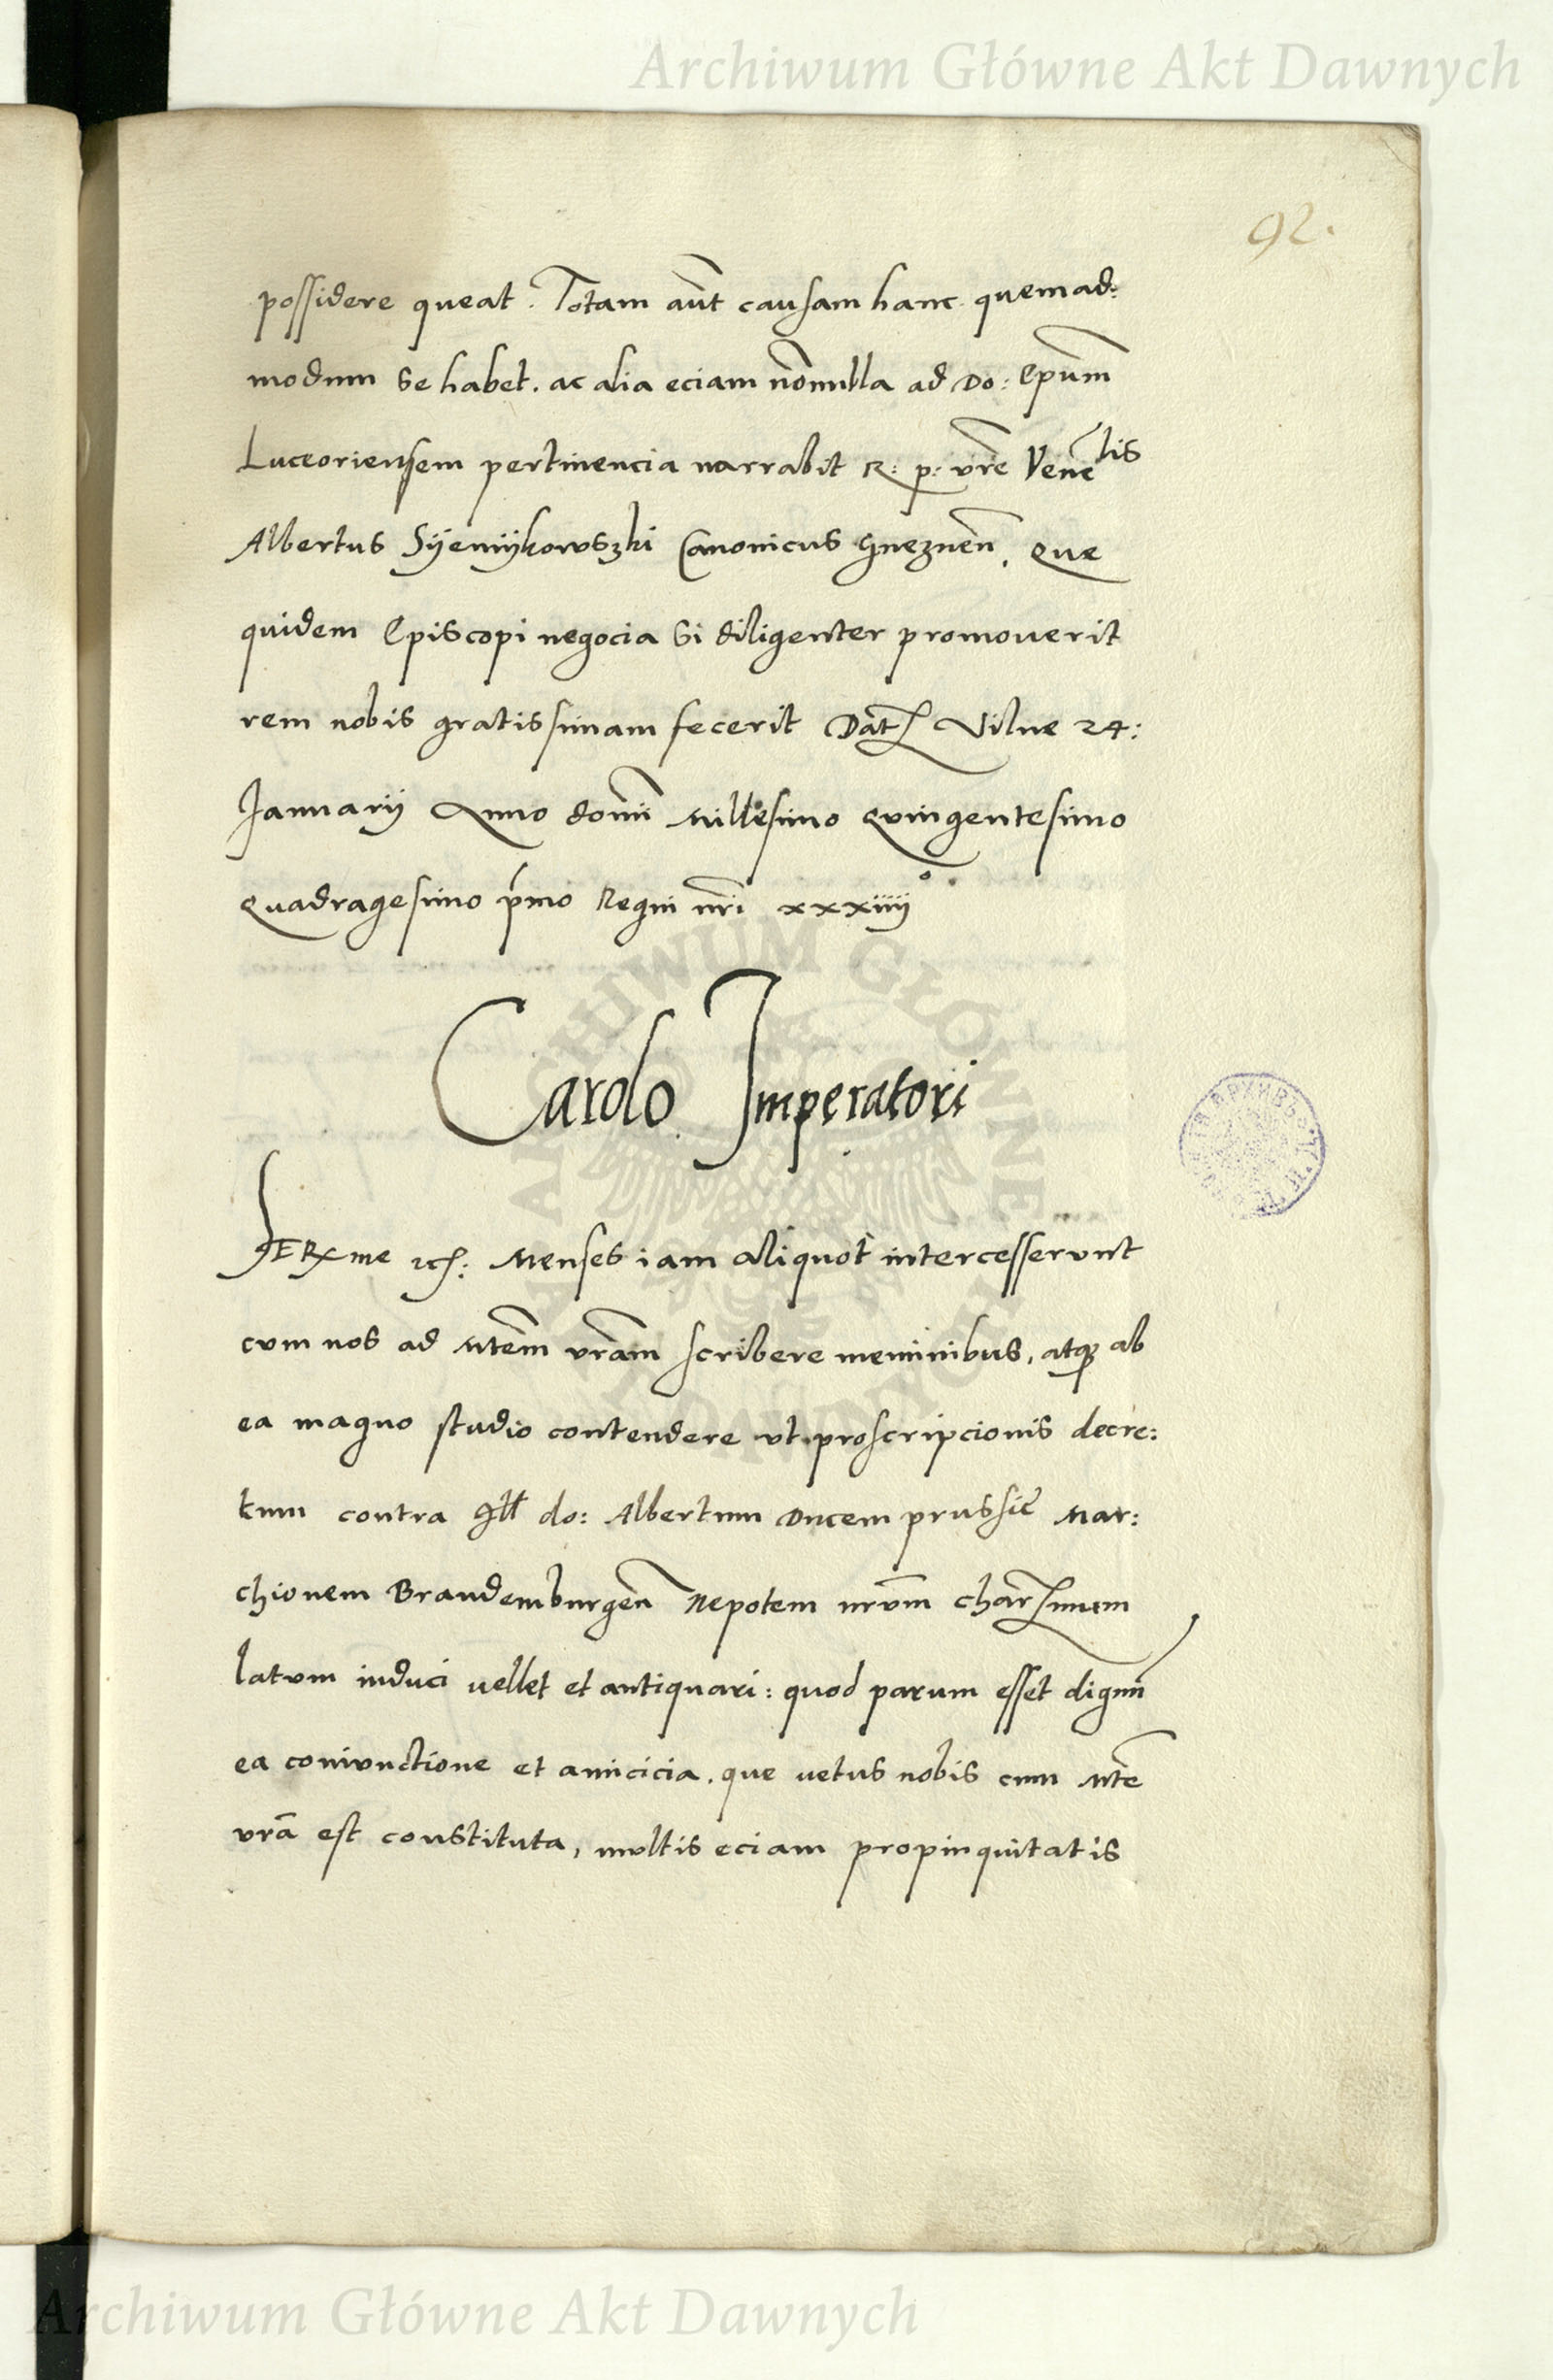 Archiwum Główne Akt Dawnych
92.
possidere queat. Totam aut̃ causam hanc quemad:
modum se habet. ac alia eciam nõnnulla ad Do: Ep̃um
Luceoriensem pertinencia narrabit R: p: vr̃e Venẽlis
Albertus Syemykowszki Canonicus Gneznen̄. Que
quidem Episcopi negocia si diligenter promouerit
rem nobis gratissimam fecerit Dat̃ Vilne 24:
Januarij Anno domĩ Millesimo Quingentesimo
Quadragesimo p̃mo Regni nr̃i xxxiiij°.
Carolo Imperatori
SERme Menses iam aliquot intercesserunt
cum nos ad Mtem̃ vrãm scribere meminibus, atq; ab
ea magno studio contendere vt proscripcionis decre:
tum contra Ill do: Albertum Ducem prussiẽ Mar:
chionem Brandemburgeñ Nepotem nrũm char̃imum
latum induci vellet et antiquari: quod parum esset dignũ
ea coniunctione et amicicia. que vetus nobis cum Mtẽ
vrã est constituta, multis eciam propinquitatis
Archiwum Główne Akt Dawnych